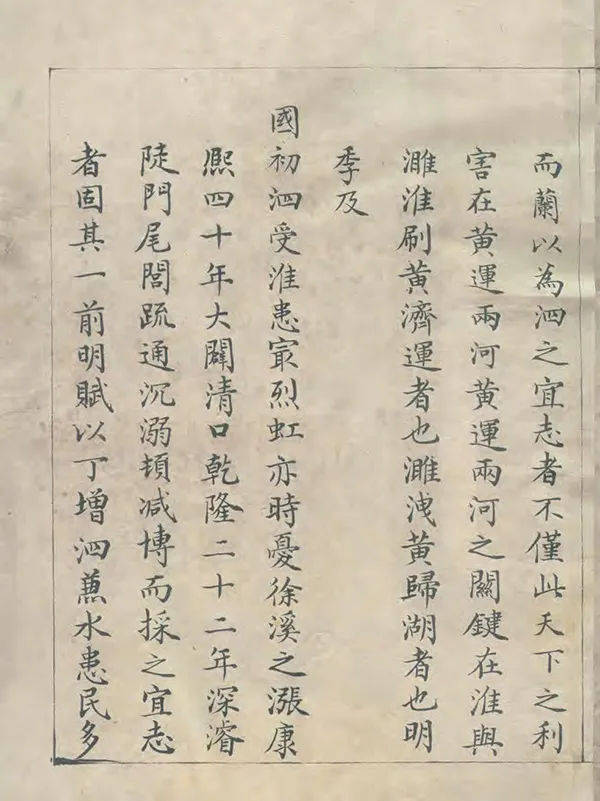 而蘭以為泗之宜志者不僅此天下之利
害在黄運兩河黄運兩河之關鍵在淮與
濉淮刷黄濟運者也濉洩黄歸湖者也明
季及
國初泗受淮患㝡烈虹亦時憂徐溪之漲康
熈四十年大闢清口乾隆二十二年深濬
陡門尾閭疏通沉溺頓减博而採之宜志
者固其一前明賦以丁增泗蕙水患民多